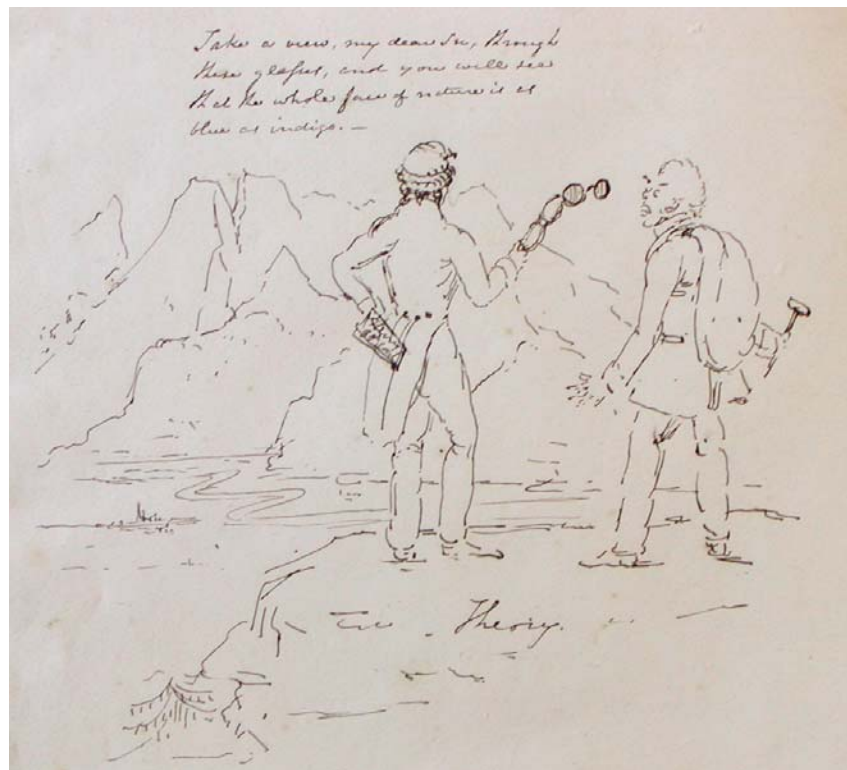 Take a view, my dear Sir, through
these glasses, and you will see
that the whole face of nature is as
blue as indigo. —
Theory.